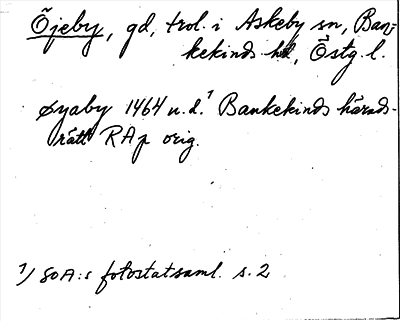 Öjeby, gd, trol. i Askeby sn, Ban-
kekinds hd, Östg. l.
Øyaby 1464 u.d.¹ Bankekinds härads-
rätt RAp orig.
¹) SOA:s fotostatsaml. s. 2